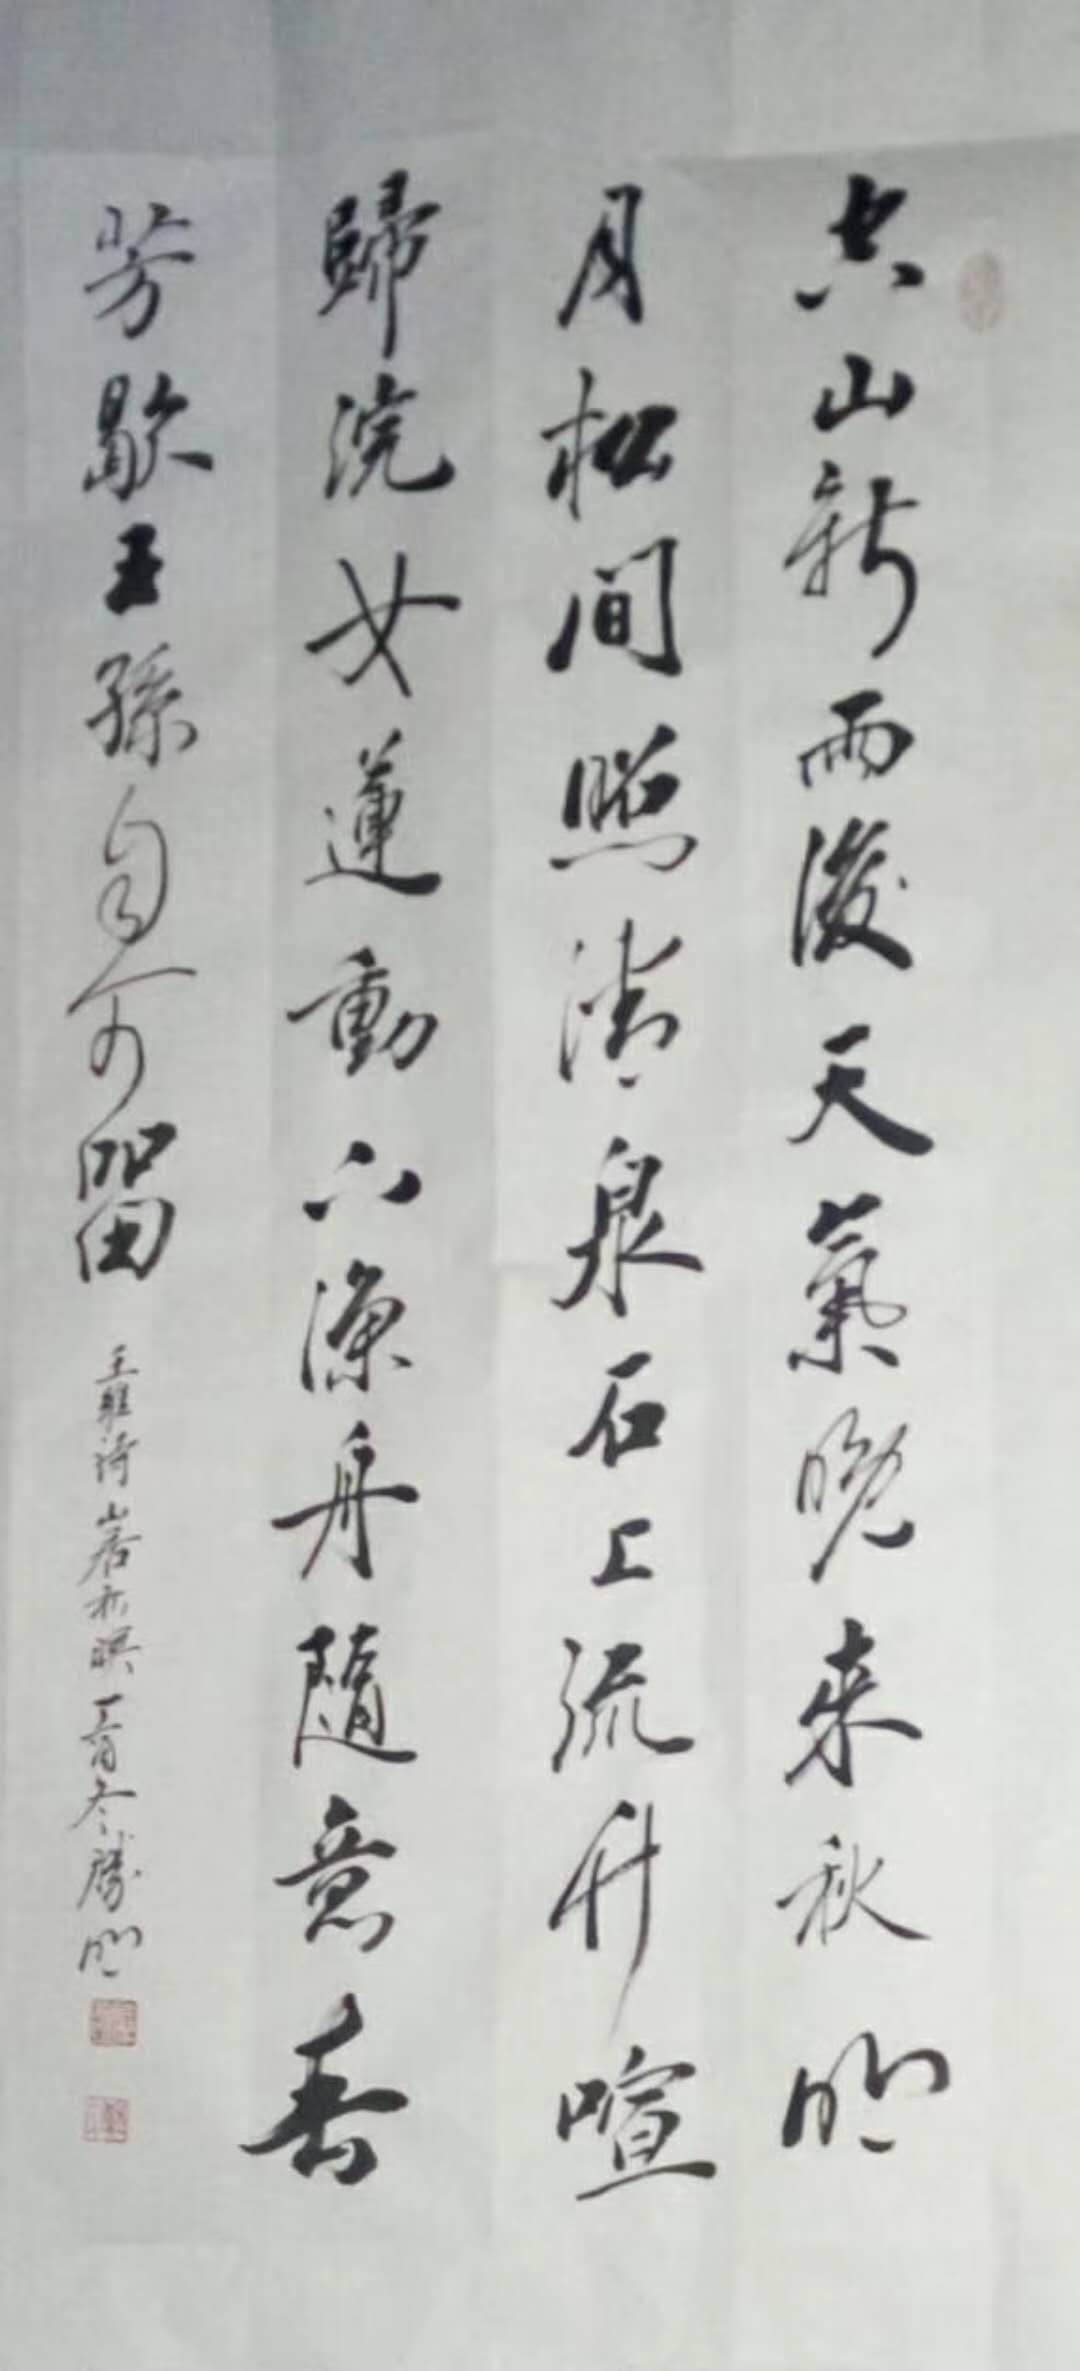 空山新雨後天氣晚来秋明
月松间照清泉石上流竹喧
歸浣女蓮動下漁舟隨意春
芳歇王孫自可留
王維詩山居秋暝丁酉冬勝明